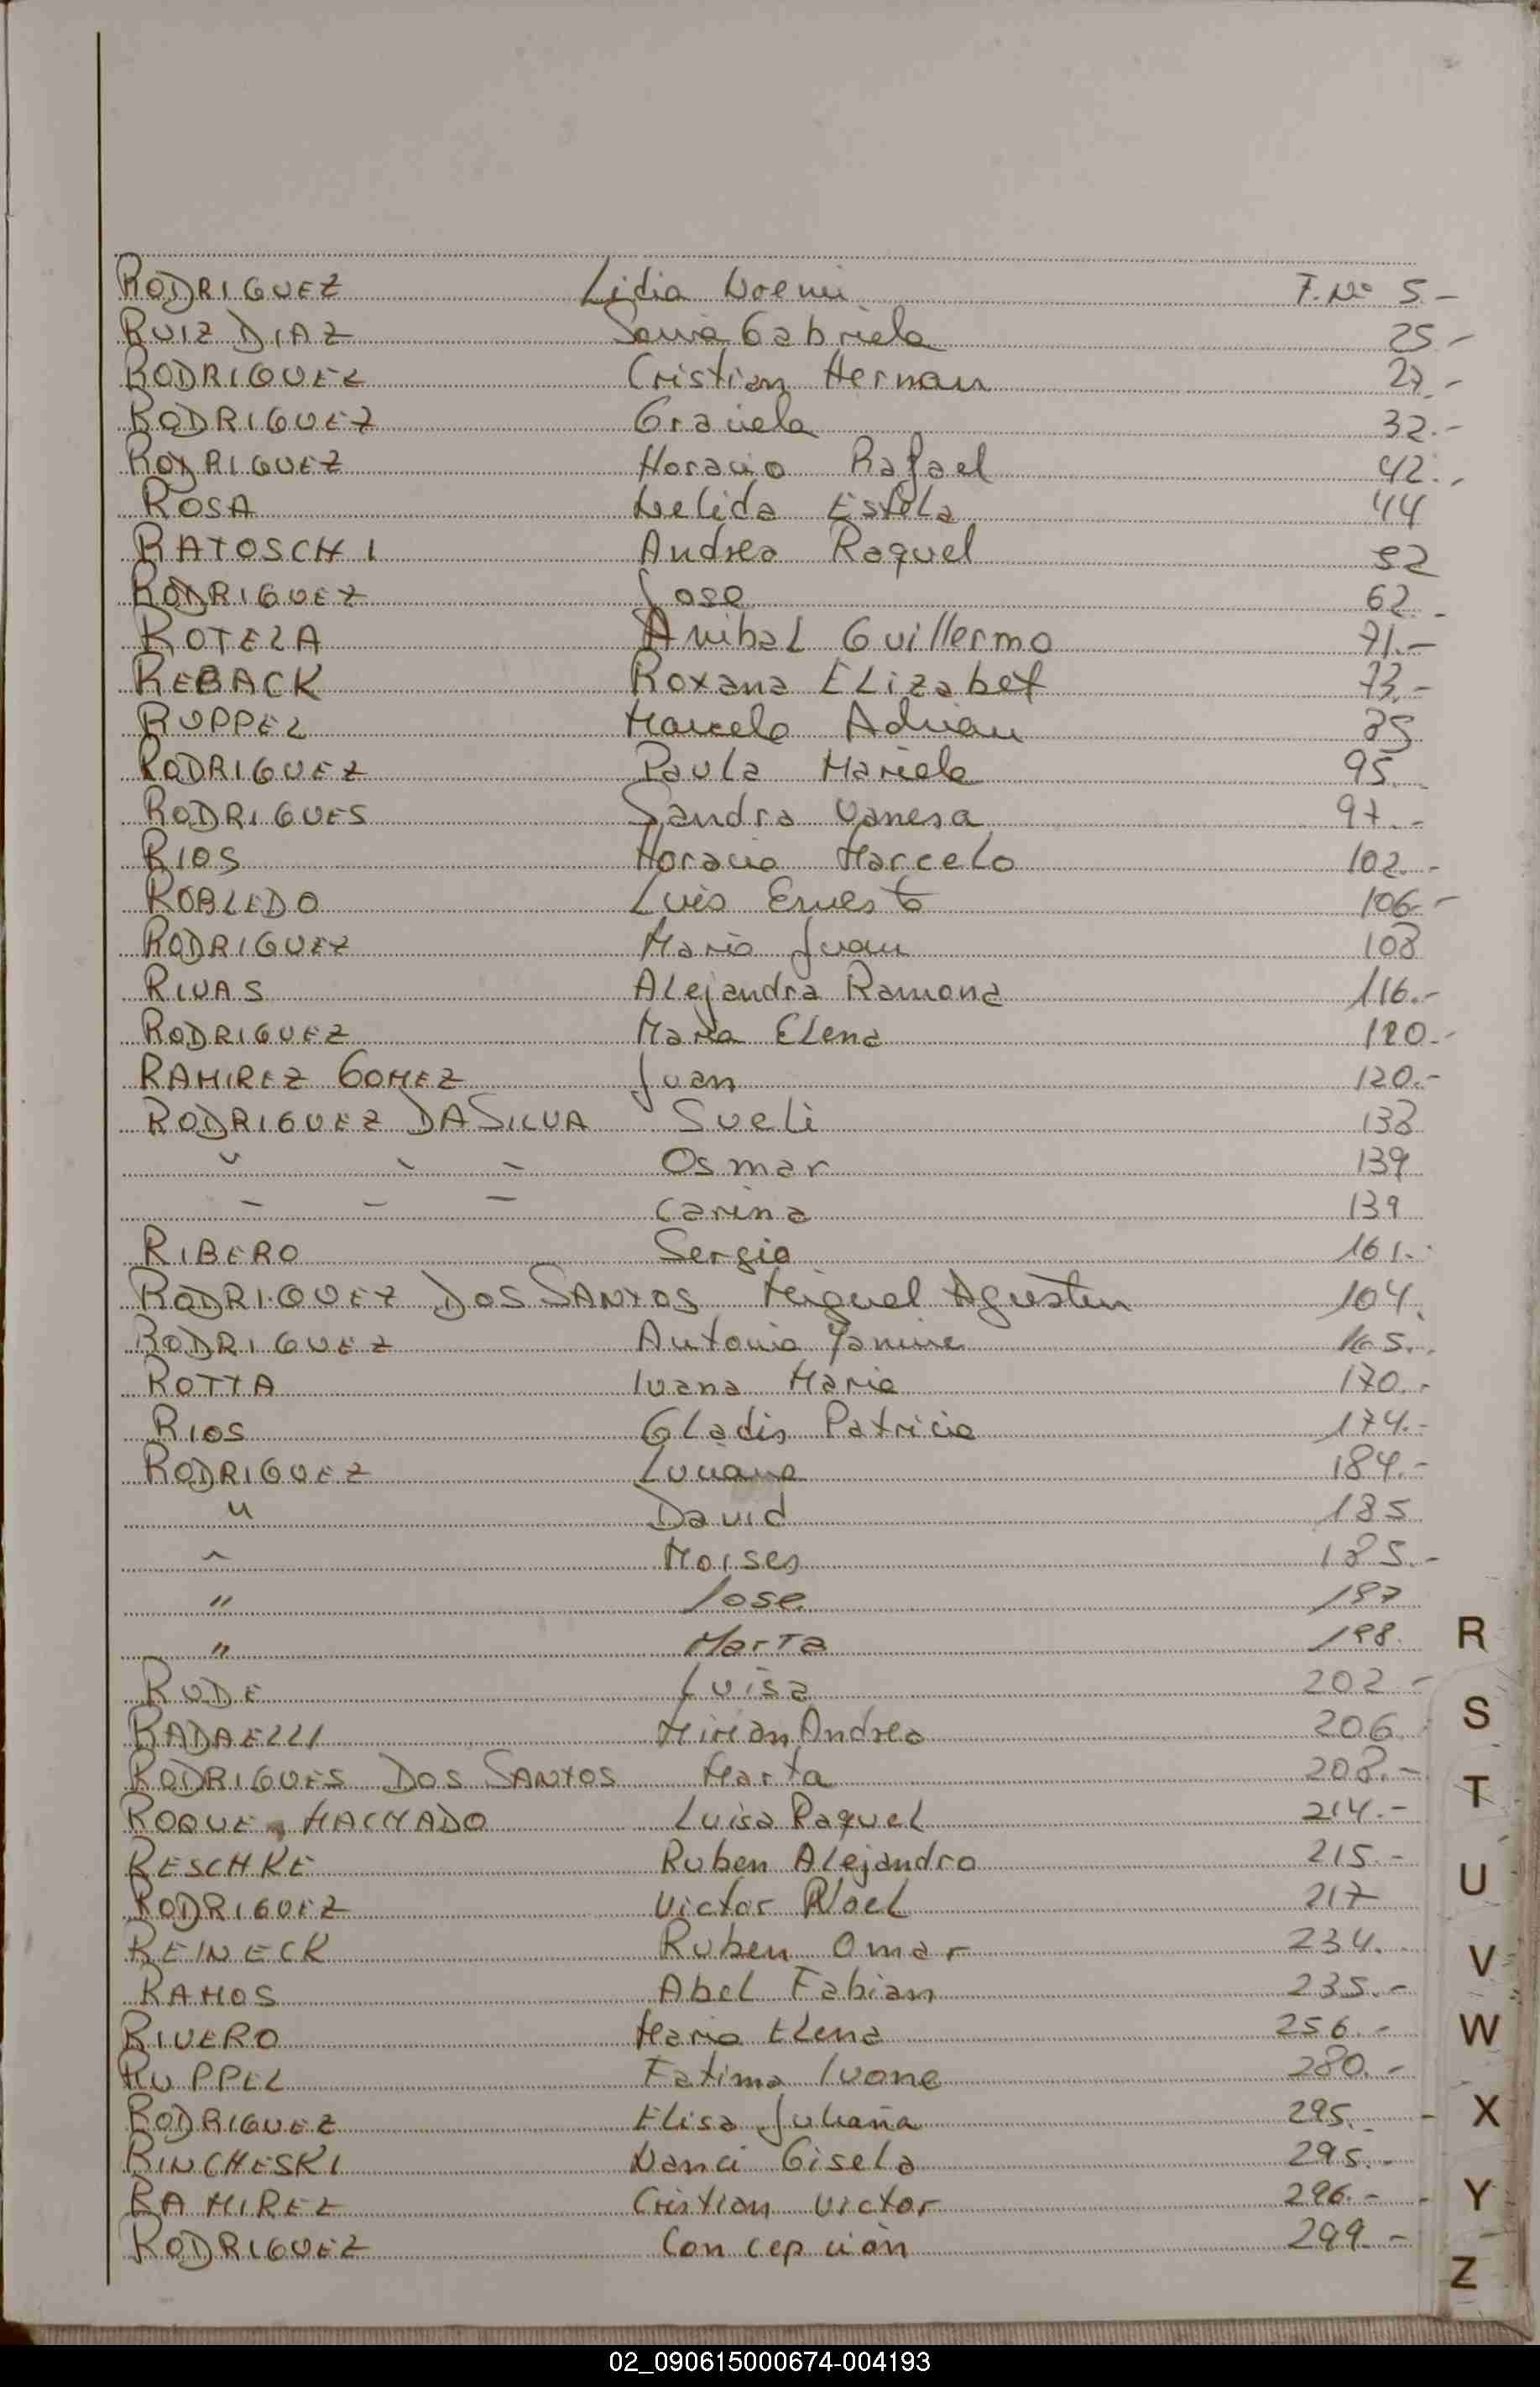 RODRIGUEZ Lidia Noemi F. Nº 5.-
RUIZ DIAZ Sonia Gabriela 25.-
RODRIGUEZ Cristian Hernan 27.-
RODRIGUEZ Graciela 32.-
RODRIGUEZ Horacio Rafael 42.-
ROSA Nelida Estela 44
RATOSCHI Andrea Raquel 52
RODRIGUEZ Jose 62.-
ROTELA Anibal Guillermo 71.-
REBACK Roxana Elizabet 73.-
RUPPEL Marcelo Adrian 85
RODRIGUEZ Paula Mariela 95
RODRIGUES Sandra Vanesa 97.-
RIOS Horacio Marcelo 102.-
ROBLEDO Luis Ernesto 106.-
RODRIGUEZ Mario Juan 108
RIVAS Alejandra Ramona 116.-
RODRIGUEZ Maria Elena 120.-
RAMIREZ GOMEZ Juan 120.-
RODRIGUEZ DA SILVA Sueli 138
" " " Osmar 139
" " " Carina 139
RIBERO Sergio 161.-
RODRIGUEZ DOS SANTOS Miguel Agustin 164.
RODRIGUEZ Antonio Yamine 165.
ROTTA Ivana Maria 170.-
RIOS Gladis Patricia 174.-
RODRIGUEZ Luciano 184.-
" David 185
" Moises 185.-
" Jose 197
" Marta 198.
RODE Luisa 202.-
RADAELLI Mirian Andrea 206.
RODRIGUES DOS SANTOS Marta 208.-
ROQUE MACHADO Luisa Raquel 214.-
RESCHKE Ruben Alejandro 215.-
RODRIGUEZ Victor Noel 217
REINECK Ruben Omar 234.
RAMOS Abel Fabian 235.-
RIVERO Maria Elena 256.-
RUPPEL Fatima Ivone 280.-
RODRIGUEZ Elisa Juliana 295.-
RINCHESKI Nanci Gisela 295.-
RAMIREZ Cristian Victor 296.-
RODRIGUEZ Concepción 299.-
R
S
T
U
V
W
X
Y
Z
02_090615000674-004193